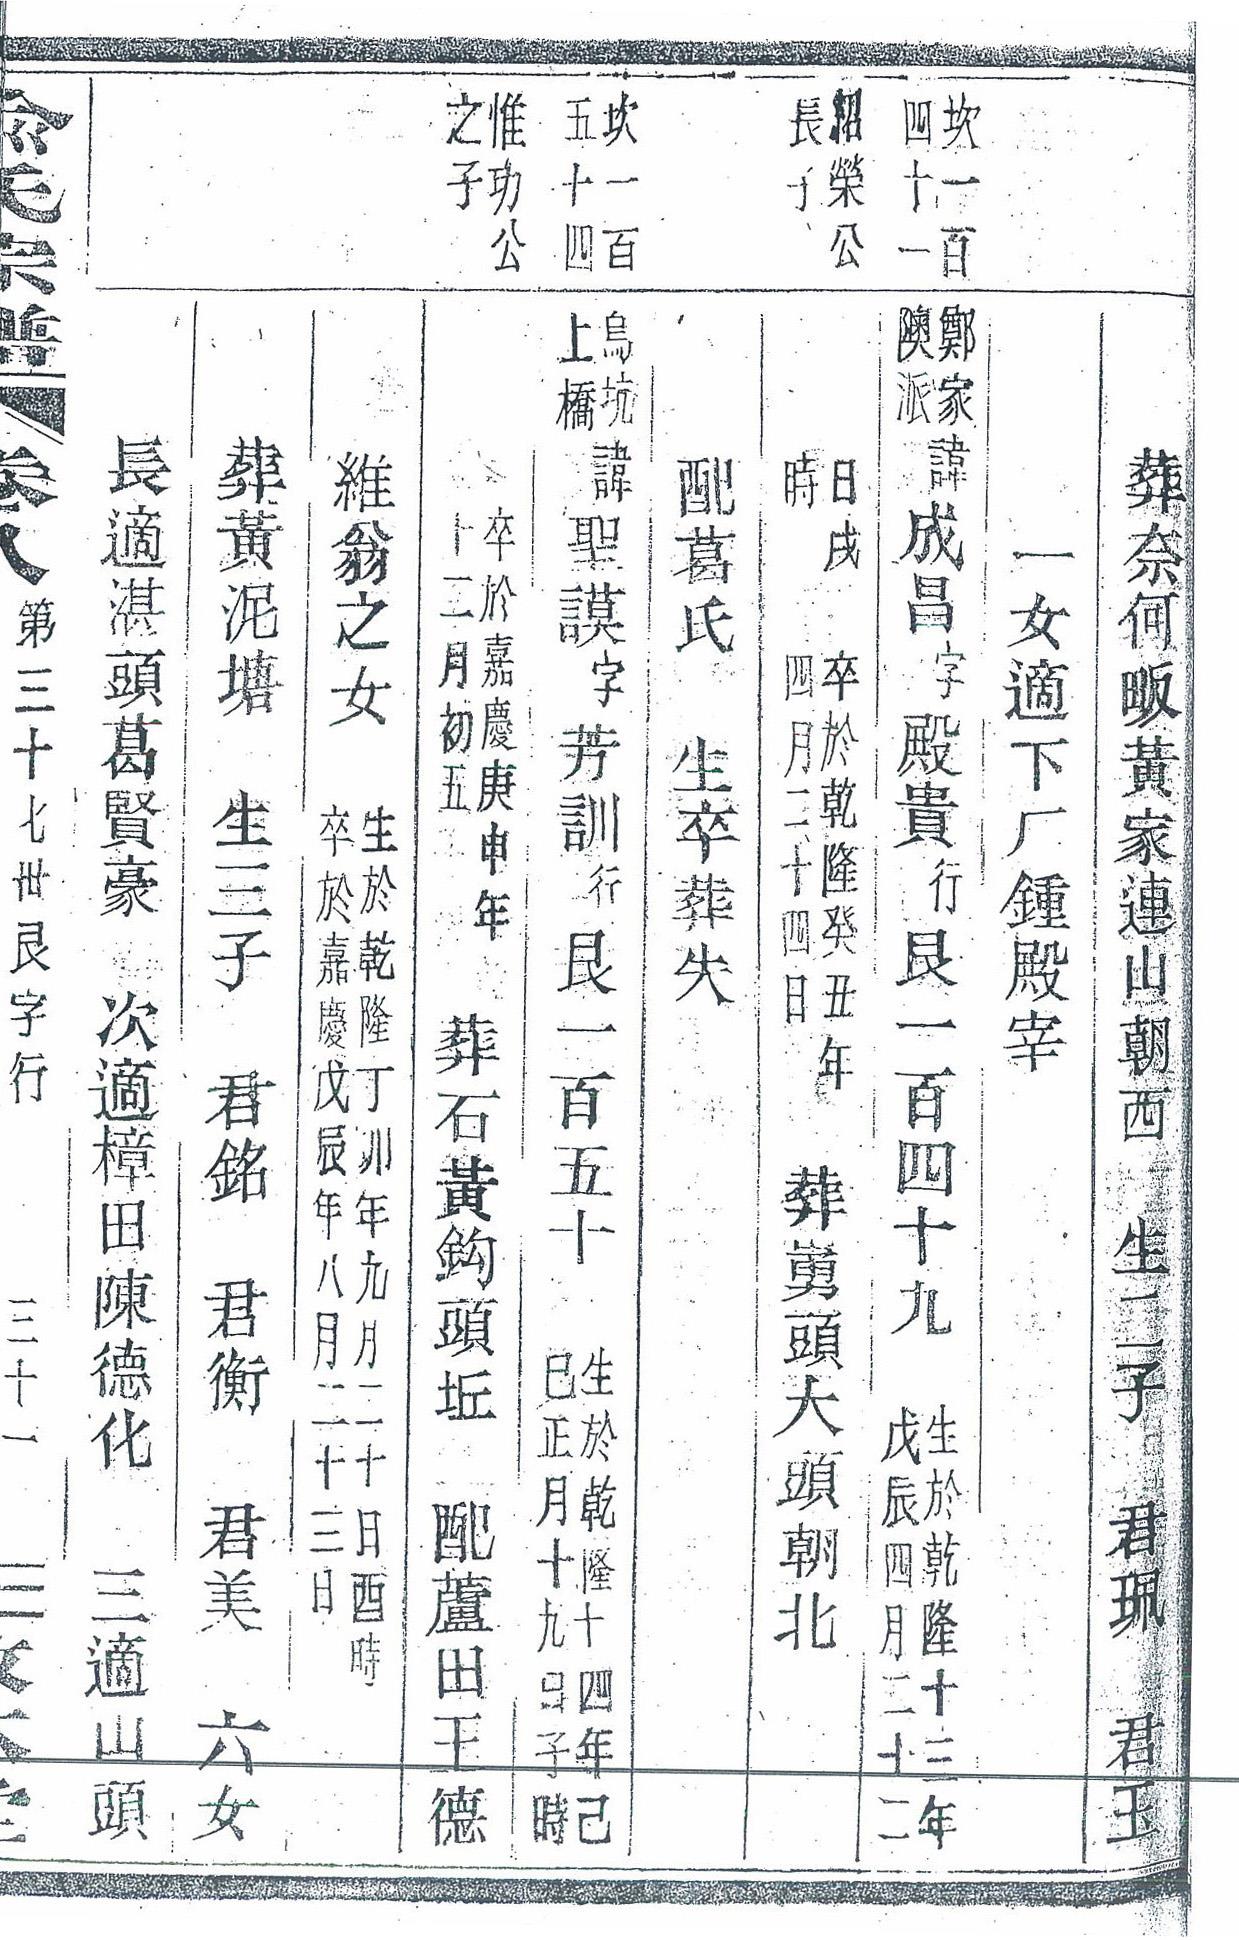 葬奈何畈黃家連山朝西　生二子　君珮　君玉
一女適下厂鍾殿宰
坎一百
四十一
鄭家
隩派
諱成昌字殿貴行艮一百四十九
生於乾隆十三年
戊辰四月二十二
紹榮公
長子
日戌
時
卒於乾隆癸丑年
四月二十四日
葬舅頭大頭朝北
配葛氏　生卒葬失
坎一百
五十四
烏坑
上橋
諱聖謨字芳訓行艮一百五十
生於乾隆十四年己
巳正月十九日子時
惟功公
之子
卒於嘉慶庚申年
十二月初五
葬石黃鈎頭坵　配蘆田王德
維翁之女
生於乾隆丁卯年九月二十日酉時
卒於嘉慶戊辰年八月二十三日
葬黃泥塘　生三子　君銘　君衡　君美　六女
長適湛頭葛賢豪　次適樟田陳德化　三適山頭
氏宗譜　卷八　第三十七世艮字行　三十一